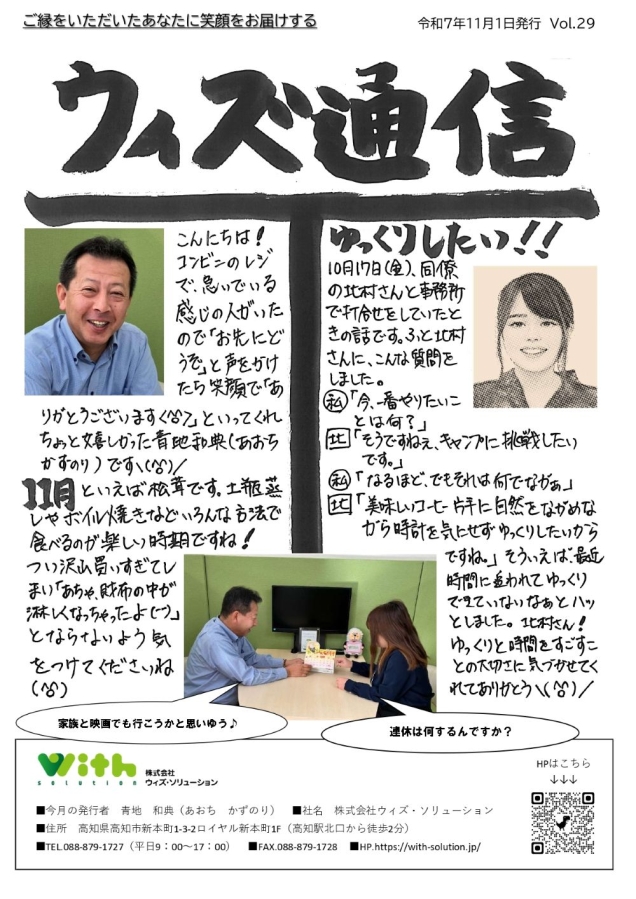 ご縁をいただいたあなたに笑顔をお届けする
令和7年11月1日発行 Vol.29
ウィズ通信
こんにちは!
コンビニのレジ
で、急いでいる
感じの人がいた
ので「お先にど
うぞ」と声をかけ
たら笑顔で「あ
りがとうございます(^^)」といってくれ
ちょっと嬉しかった青地和典(あおち
かずのり)です\(^^)/
11月といえば松茸です。土瓶蒸
しやホイル焼きなどいろんな方法で
食べるのが楽しい時期ですね!
つい沢山買いすぎてし
まい「あちゃ、財布の中が
淋しくなっちゃったよ(--)」
とならないよう気
をつけてくださいね
(^^)
ゆっくりしたい!!
10月17日(金)、同僚
の北村さんと事務所
で打合せをしていたと
きの話です。ふと北村
さんに、こんな質問を
しました。
私「今、一番やりたいこ
とは何?」
北「そうですねぇ、キャンプに挑戦したい
です。」
私「なるほど、でもそれは何でながぁ」
北「美味しいコーヒー片手に自然をながめな
がら時計を気にせずゆっくりしたいから
ですね。」そういえば、最近
時間に追われてゆっくり
できていないなぁとハッ
としました。北村さん!
ゆっくりと時間をすごすこ
との大切さに気づかせてく
れてありがとう\(^^)/
家族と映画でも行こうかと思いゆう♪
連休は何するんですか?
With
solution
株式会社
ウィズ・ソリューション
HPはこちら
↓↓↓
■今月の発行者 青地 和典(あおち かずのり) ■社名 株式会社ウィズ・ソリューション
■住所 高知県高知市新本町1-3-2ロイヤル新本町1F(高知駅北口から徒歩2分)
■TEL.088-879-1727(平日9:00~17:00) ■FAX.088-879-1728 ■HP.https://with-solution.jp/